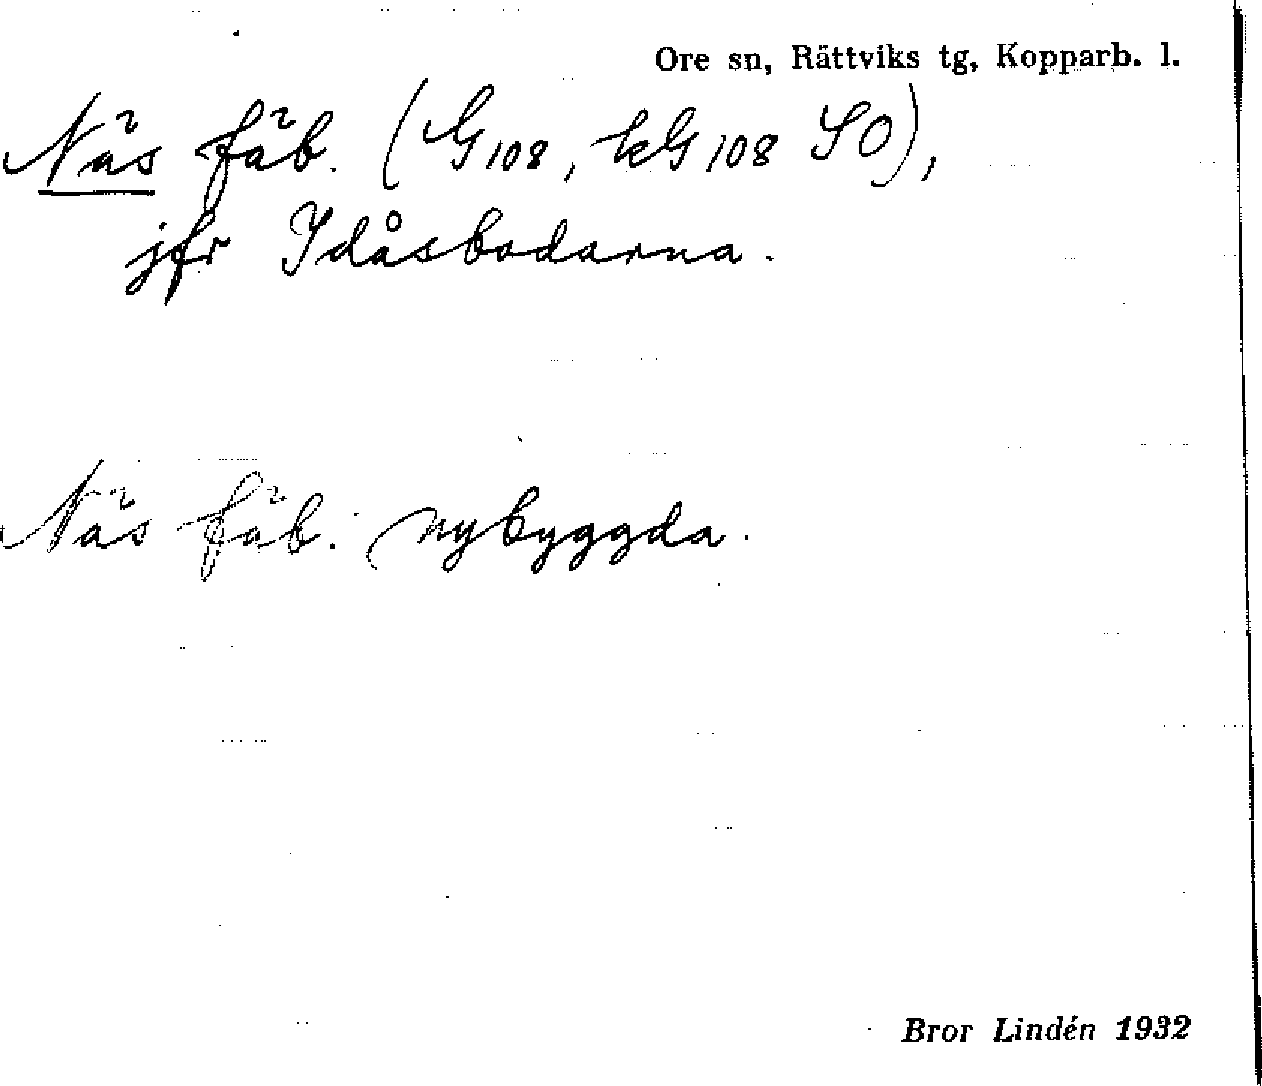 Ore sn, Rättviks tg, Kopparb. l.
Näs fäb. (G 108, kG 108 SO),
jfr Idåsbodarna.
Näs fäb. nybyggda.
Bror Lindén 1932